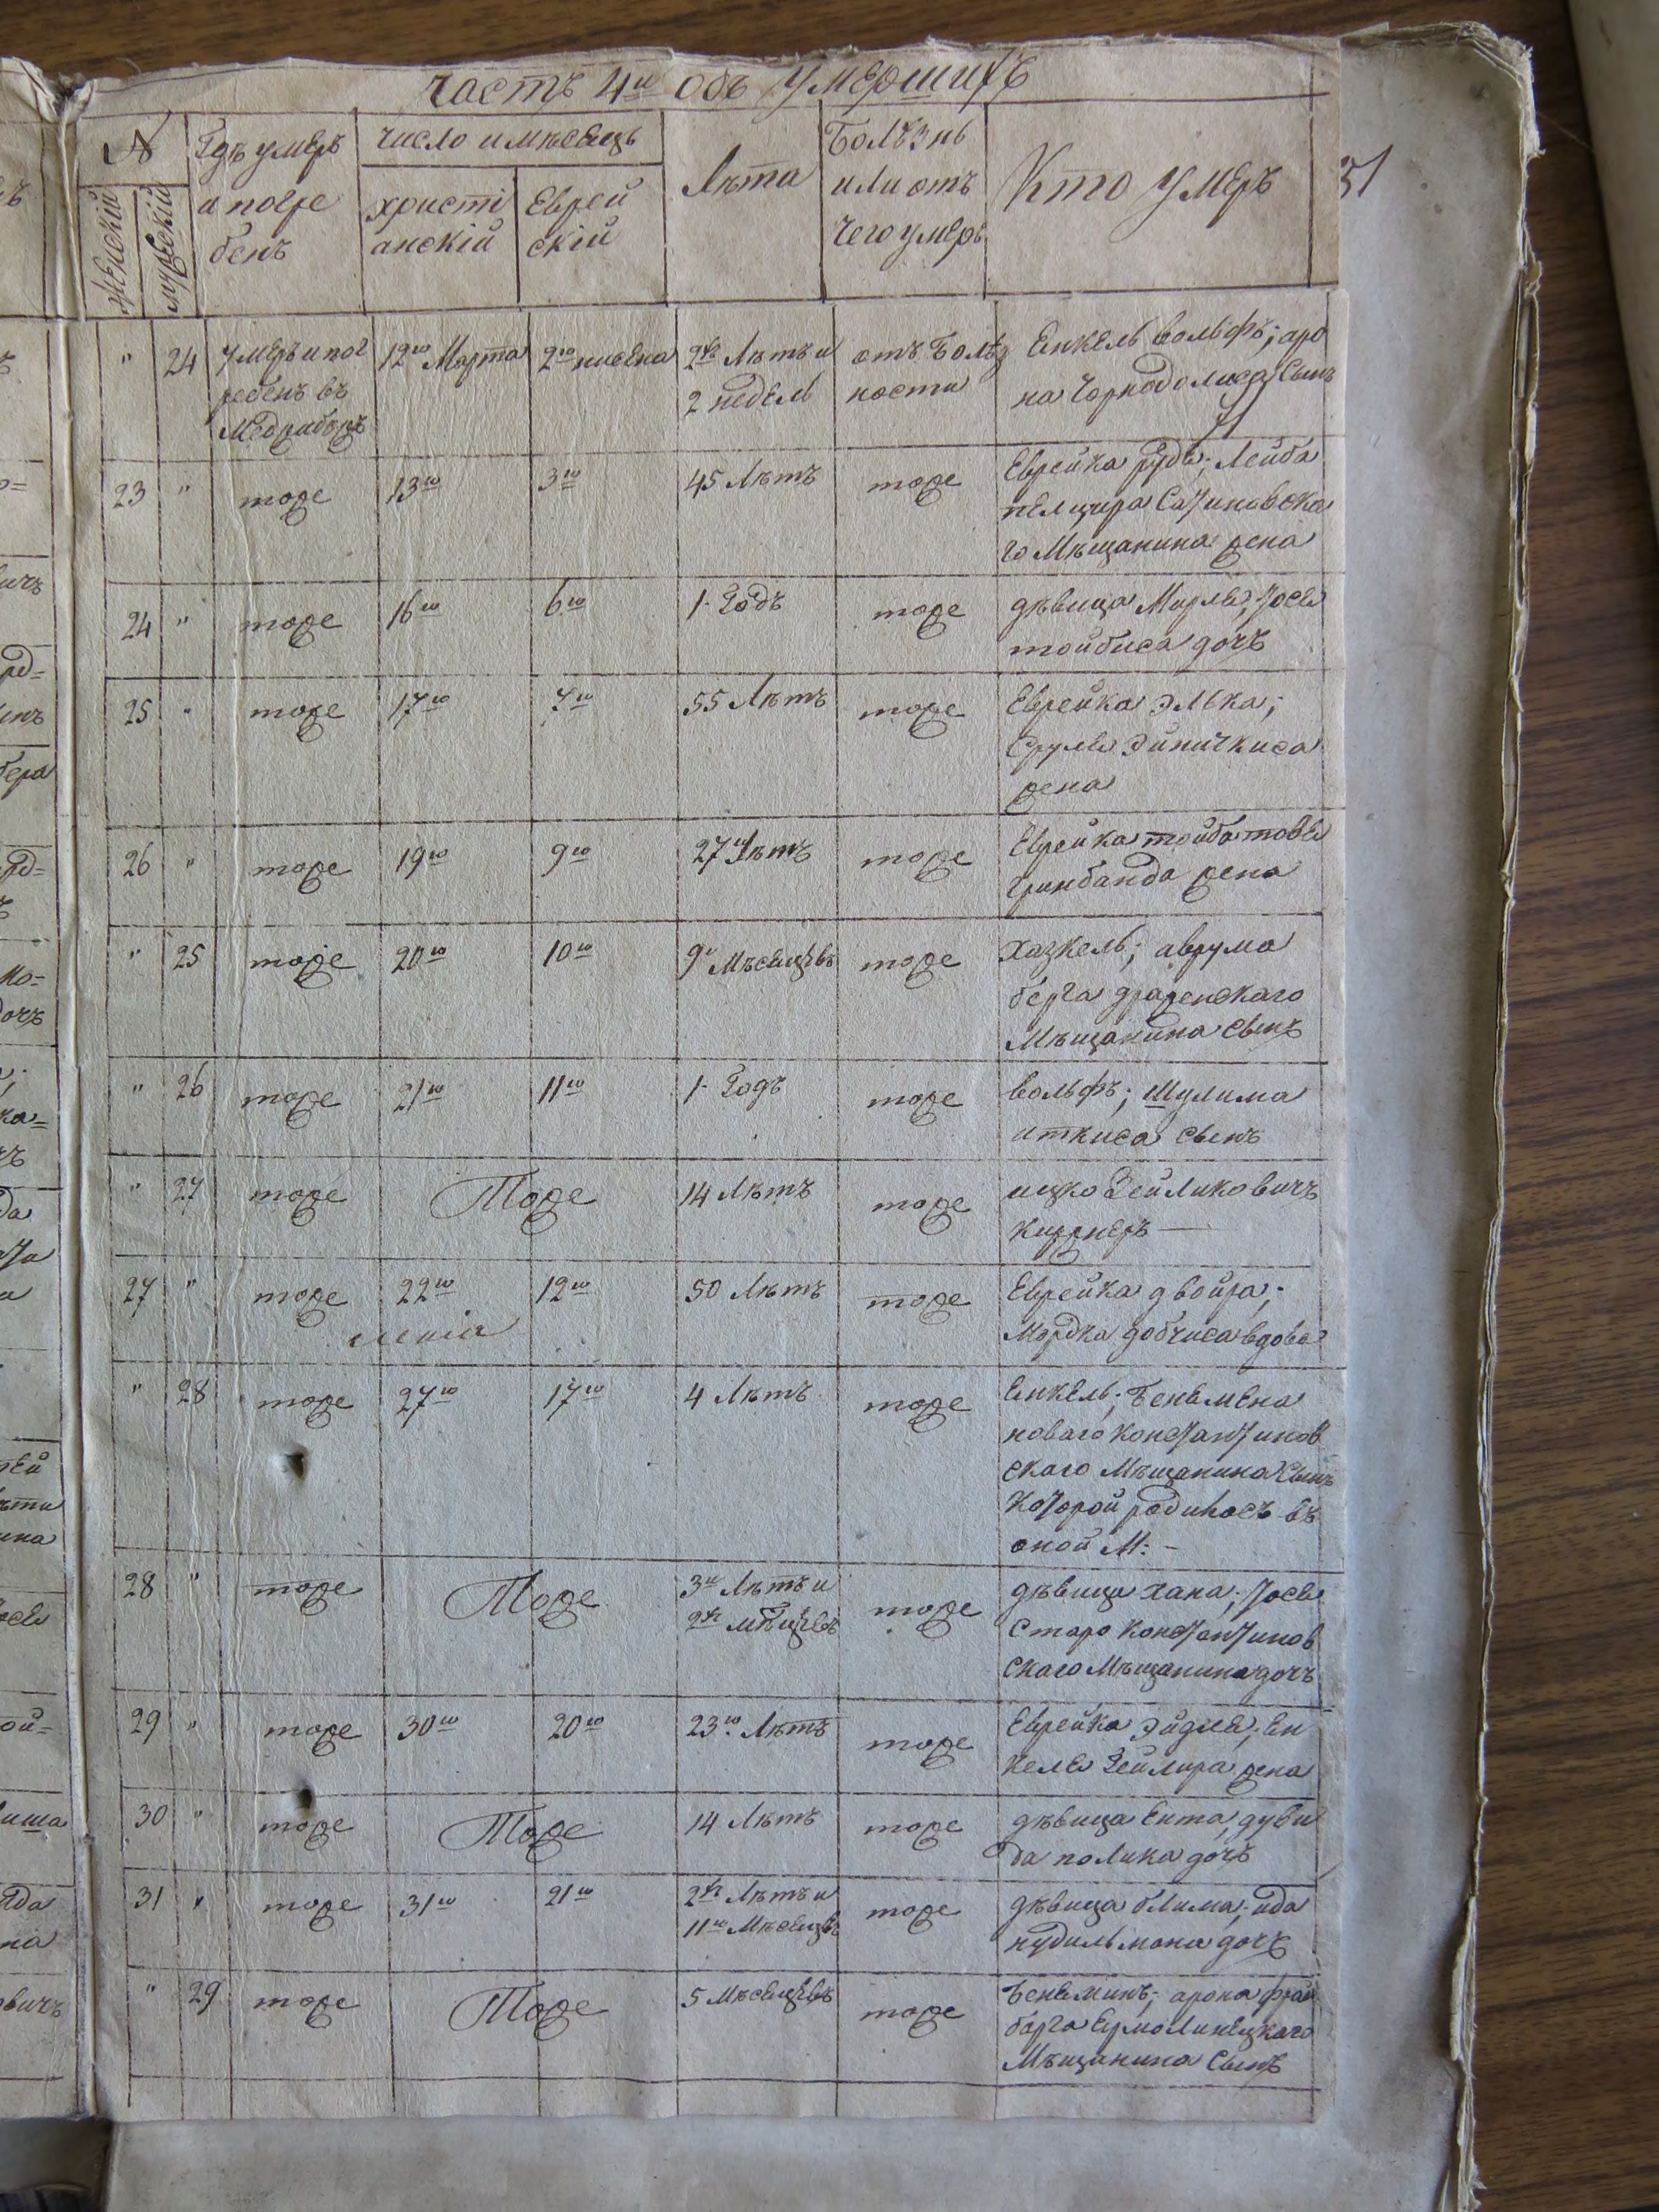 Часть 4ᵃ Объ Умершихъ
№
Женскій
Мужескій
Гдѣ умеръ
и погре
бенъ
Число и мѣсецъ
христі
анскій
Еврей
скій
Лѣта
Болѣзнь
или отъ
чего умеръ
Кто умеръ
51
" 24 Умеръ и пог 12го Марта 2го нисена 2хъ Лѣтъ и отъ Болѣз Енкель вольфъ; аро
ребенъ въ 2 недель ности на Чорнодолиса Сынъ
Медзибожъ
23 " тоже 13го 3го 45 Лѣтъ тоже Еврейка рудя; Лейба
пелцира Сатиновска
го Мѣщанина жена
24 " тоже 16го 6го 1 Годъ тоже дѣвица Мирля; Іося
тойбиса дочъ
25 " тоже 17го 7го 55 Лѣтъ тоже Еврейка Элька;
Сруля Эйничкиса
жена
26 " тоже 19го 9го 27 Лѣтъ тоже Еврейка тойба товя
Гринбанда жена
" 25 тоже 20го 10го 9и Мѣсецевъ тоже Хазкель; аврума
берга дражскаго
Мѣщанина Сынъ
" 26 тоже 21го 11го 1 Годъ тоже вольфъ; Шулима
иткиса Сынъ
" 27 тоже Тоже 14 Лѣтъ тоже ицко Зейликовичъ
киржнеръ —
27 " тоже 22го 12го 50 Лѣтъ тоже Еврейка двойра;
Мордка добчиса вдова
" 28 тоже 27го 17го 4 Лѣтъ тоже Енкель; Беньмена
новаго Константинов
скаго Мѣщанина Сынъ
Которой родилосъ въ
оной М: —
28 " тоже Тоже 3и Лѣтъ и тоже дѣвица хана; Іося
2хъ мѣсецевъ Старо Константинов
скаго Мѣщанина дочъ
29 " тоже 30го 20го 23го Лѣтъ тоже Еврейка Эйдля; Ен
келя Зейлира жена
30 " тоже Тоже 14 Лѣтъ тоже дѣвица Ента; дуви
да полика дочъ
31 " тоже 31го 21го 2хъ Лѣтъ и тоже дѣвица блима; ида
11го Мѣсецевъ нудильмана дочъ
" 29 тоже Тоже 5 Мѣсецевъ тоже Беньминъ; арона фрай
барга Ермолинецкаго
Мѣщанина Сынъ